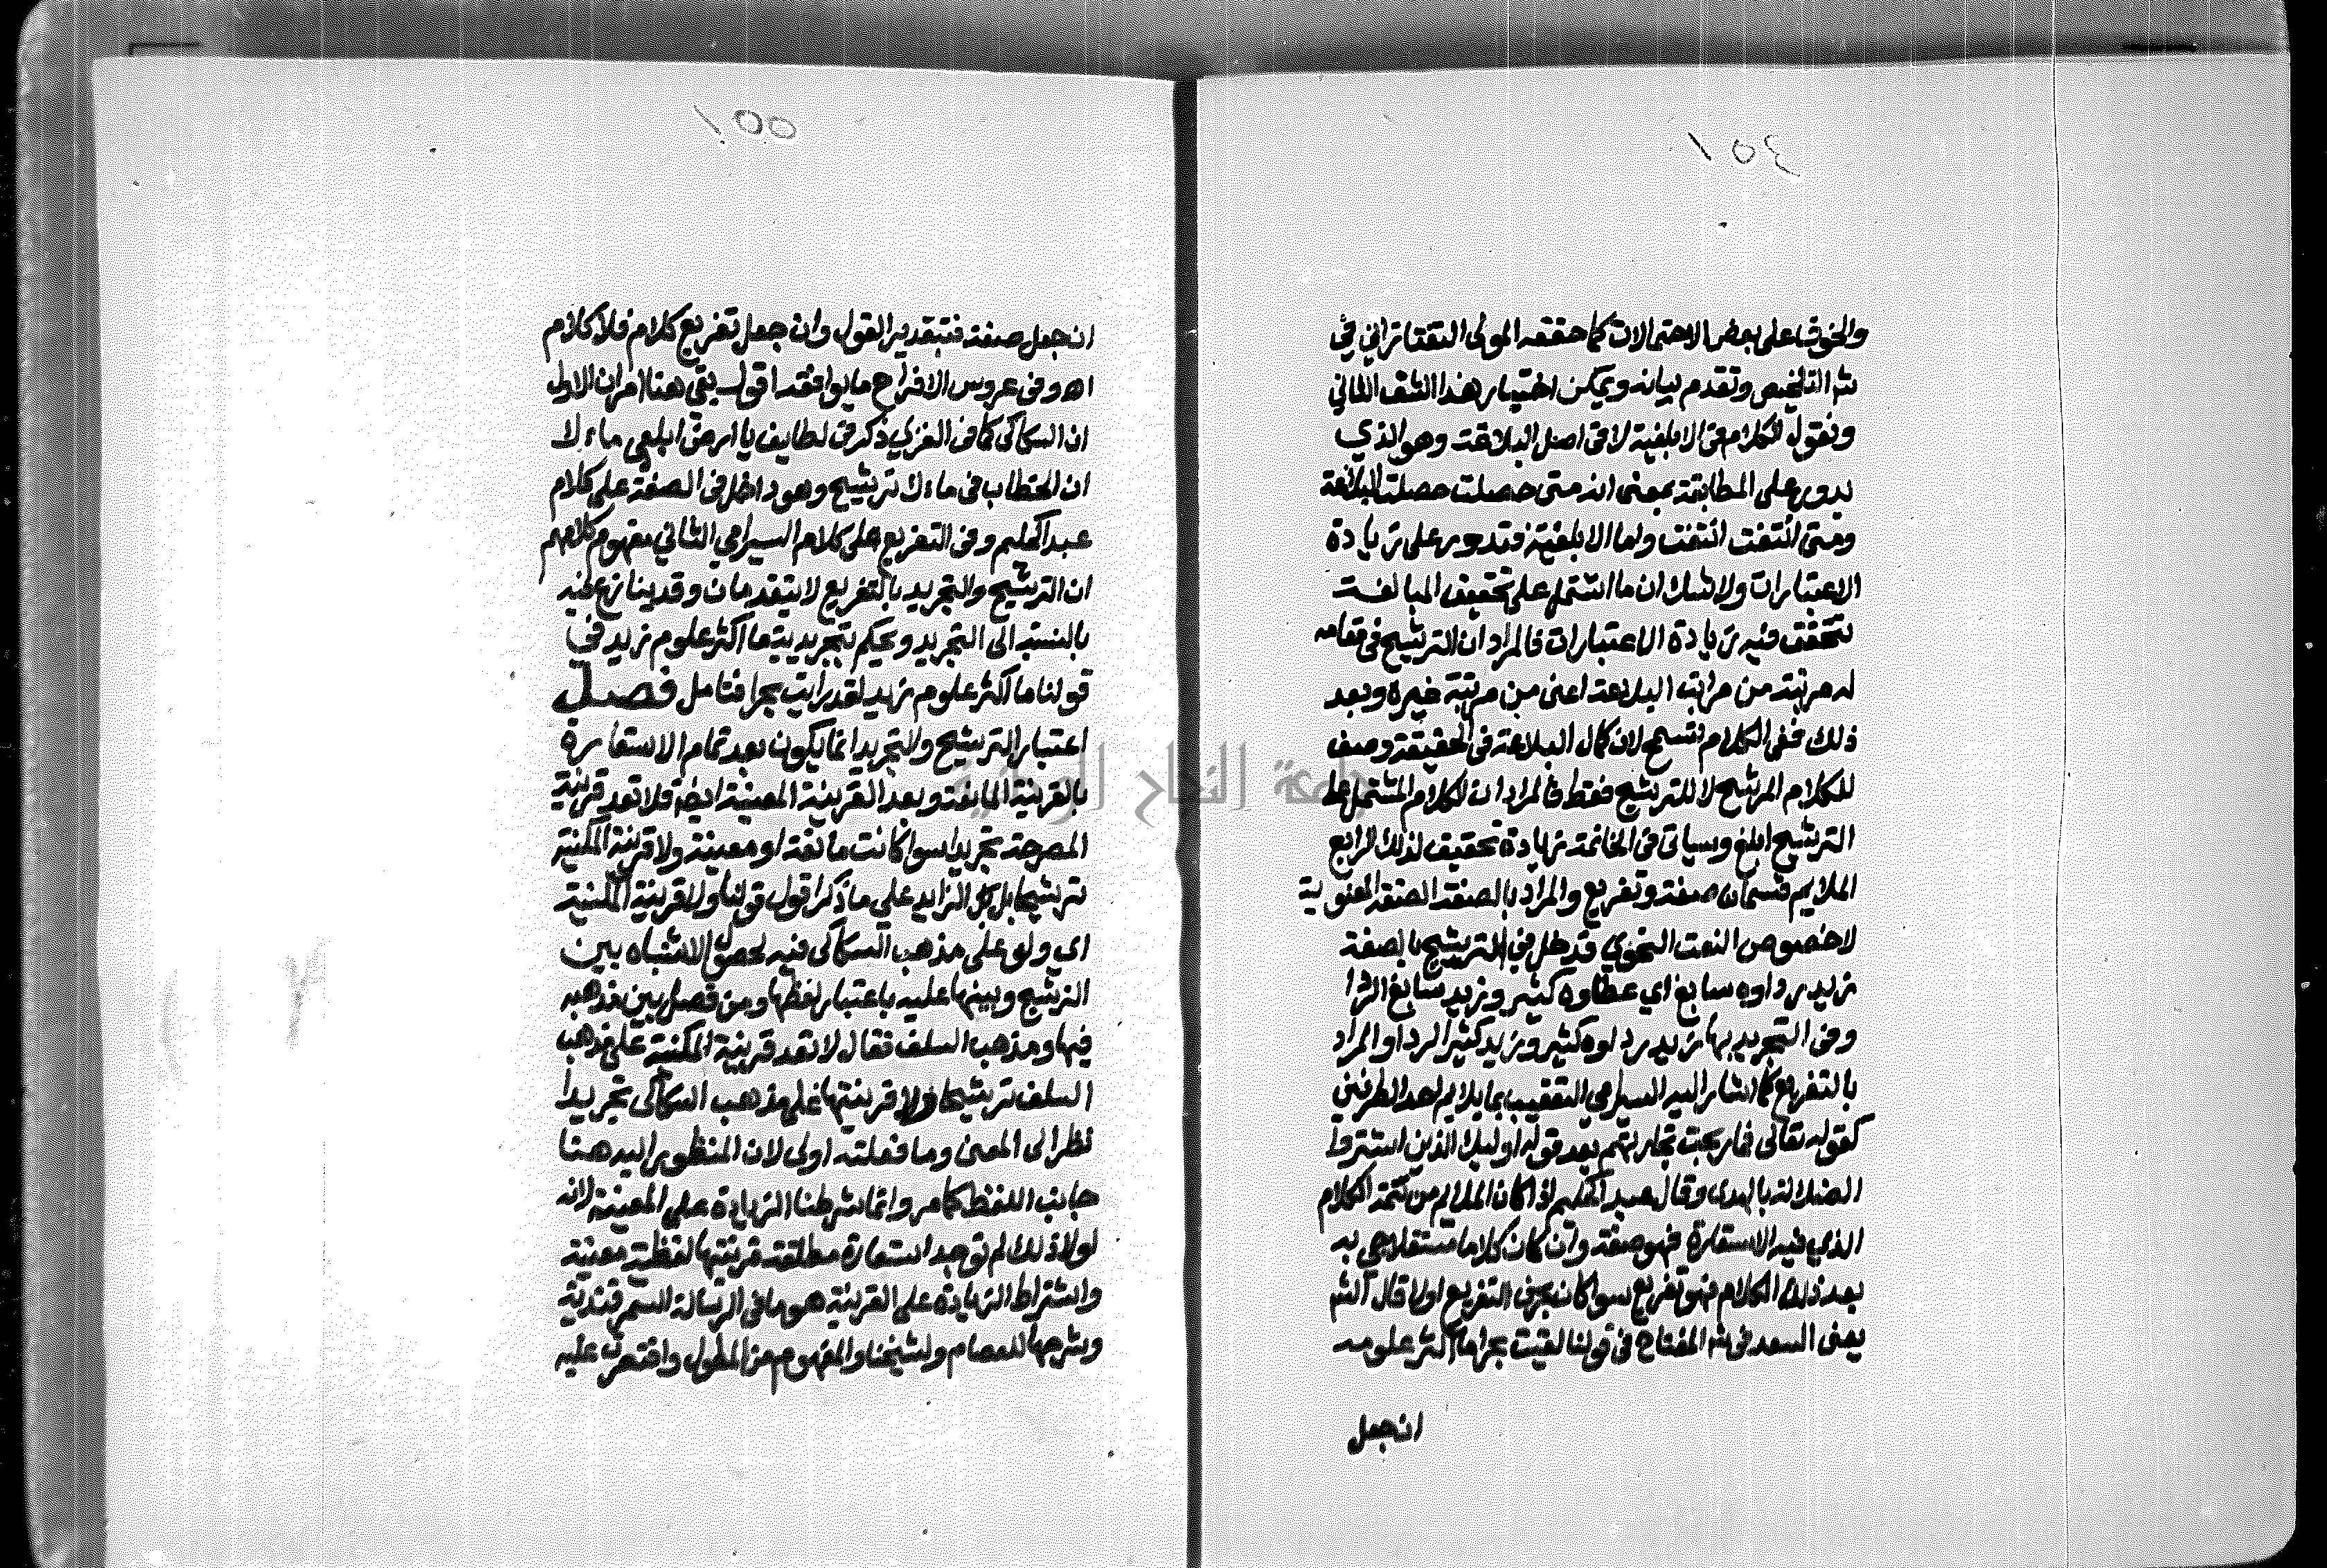 ١٥٤
والخوف على بعض الاحتمالات كما حققه المولى التفتازاني في
شم التلخيص وتقدم بيانه ويمكن اختيار هذا الشق الثاني
ونقول الكلام في الابلغية لا في اصل البلاغة وهو الذي
يدور على المطابقة بمعنى انه متى حصلت حصلت البلاغة
ومتى انتفت انتفت واما الابلغية فتدور على زيادة
الاعتبارات ولا شك ان ما اشتمل على تحقيق المبالغة
تتحقق فيه زيادة الاعتبارات فالمراد ان الترشيح في مقامه
له مرتبة من مراتب البلاغة اعنى من مرتبة غيره وبعد
ذلك ففي الكلام تسمح لان كمال البلاغة في الحقيقة وصف
للكلام المرشح لا للترشيح فقط فالمراد ان الكلام المشتمل على
الترشيح ابلغ وسياتى في الخاتمة زيادة تحقيق لذلك الرابع
الملايم قسمان صفة وتفريع والمراد بالصفة الصفة المعنوية
لا خصوص النعت النحوي فدخل في الترشيح بالصفة
زيد رداوه سابغ اي عطاوه كثير وزيد سابغ الردا
وفى التجريد بها زيد رداوه كثير وزيد كثير الردا والمراد
بالتفريع كما اشار اليه السيرامي التعقيب بما يلايم احد الطرفين
كقوله تعالى فما ربحت تجارتهم بعد قوله اوليك الذين اشتروا
الضلالة بالهدى وقال عبد الحكيم اذا كان الملايم من تتمة الكلام
الذي فيه الاستعارة فهو صفة وان كان كلاما مستقلا جي به
بعد ذلك الكلام فهو تفريع سوا كان بحرف التفريع اولا قال الشم
يعنى السعد في شم المفتاح في قولنا لقيت بحرا ما اكثر علومه
ان جعل
١٥٥
ان جعل صفة فبتقدير القول وان جعل تفريع كلام فلا كلام
اه وفى عروس الافراح ما يوافقه اقول بقى هنا امران الاول
ان السكاكى كما فى الغزي ذكر فى لطايف يا ارض ابلعي ماءك
ان الخطاب فى ماءك ترشيح وهو داخل فى الصفة على كلام
عبد الحكيم وفى التفريع على كلام السيرامي الثاني مفهوم كلامهم
ان الترشيح والتجريد بالتفريع لا يتقدمان وقد ينازع فيه
بالنسبة الى التجريد ويحكم بتجريدية ما اكثر علوم زيد في
قولنا ما اكثر علوم زيد لقد رايت بحرا فتامل فصل
اعتبار الترشيح والتجريد انما يكون بعد تمام الاستعارة
بالقرينة المانعة وبعد القرينة المعينة ايضا فلا تعد قرينة
المصرحة تجريدا سوا كانت مانعة او معينة ولا قرينة المكنية
ترشيحا بل كل الزايد على ما ذكر اقول قولنا ولا قرينة المكنية
اي ولو على مذهب السكاكى فيه لحصول الاشتباه بين
الترشيح وبينها عليه باعتبار لفظها ومن فصل بين مذهبه
فيها ومذهب السلف فقال لا تعد قرينة المكنية على مذهب
السلف ترشيحا ولا قرينتها على مذهب السكاكى تجريدا
نظر الى المعنى وما فعلته اولى لان المنظور اليه هنا
جانب اللفظ كما مر وانما شرطنا الزيادة على المعينة لانه
لولا ذلك لم توجد استعارة مطلقة قرينتها لفظية معينة
واشتراط الزيادة على القرينة هو ما فى الرسالة السمرقندية
وشرحها للعصام ولشيخنا والمفهوم من المطول واقتصرت عليه